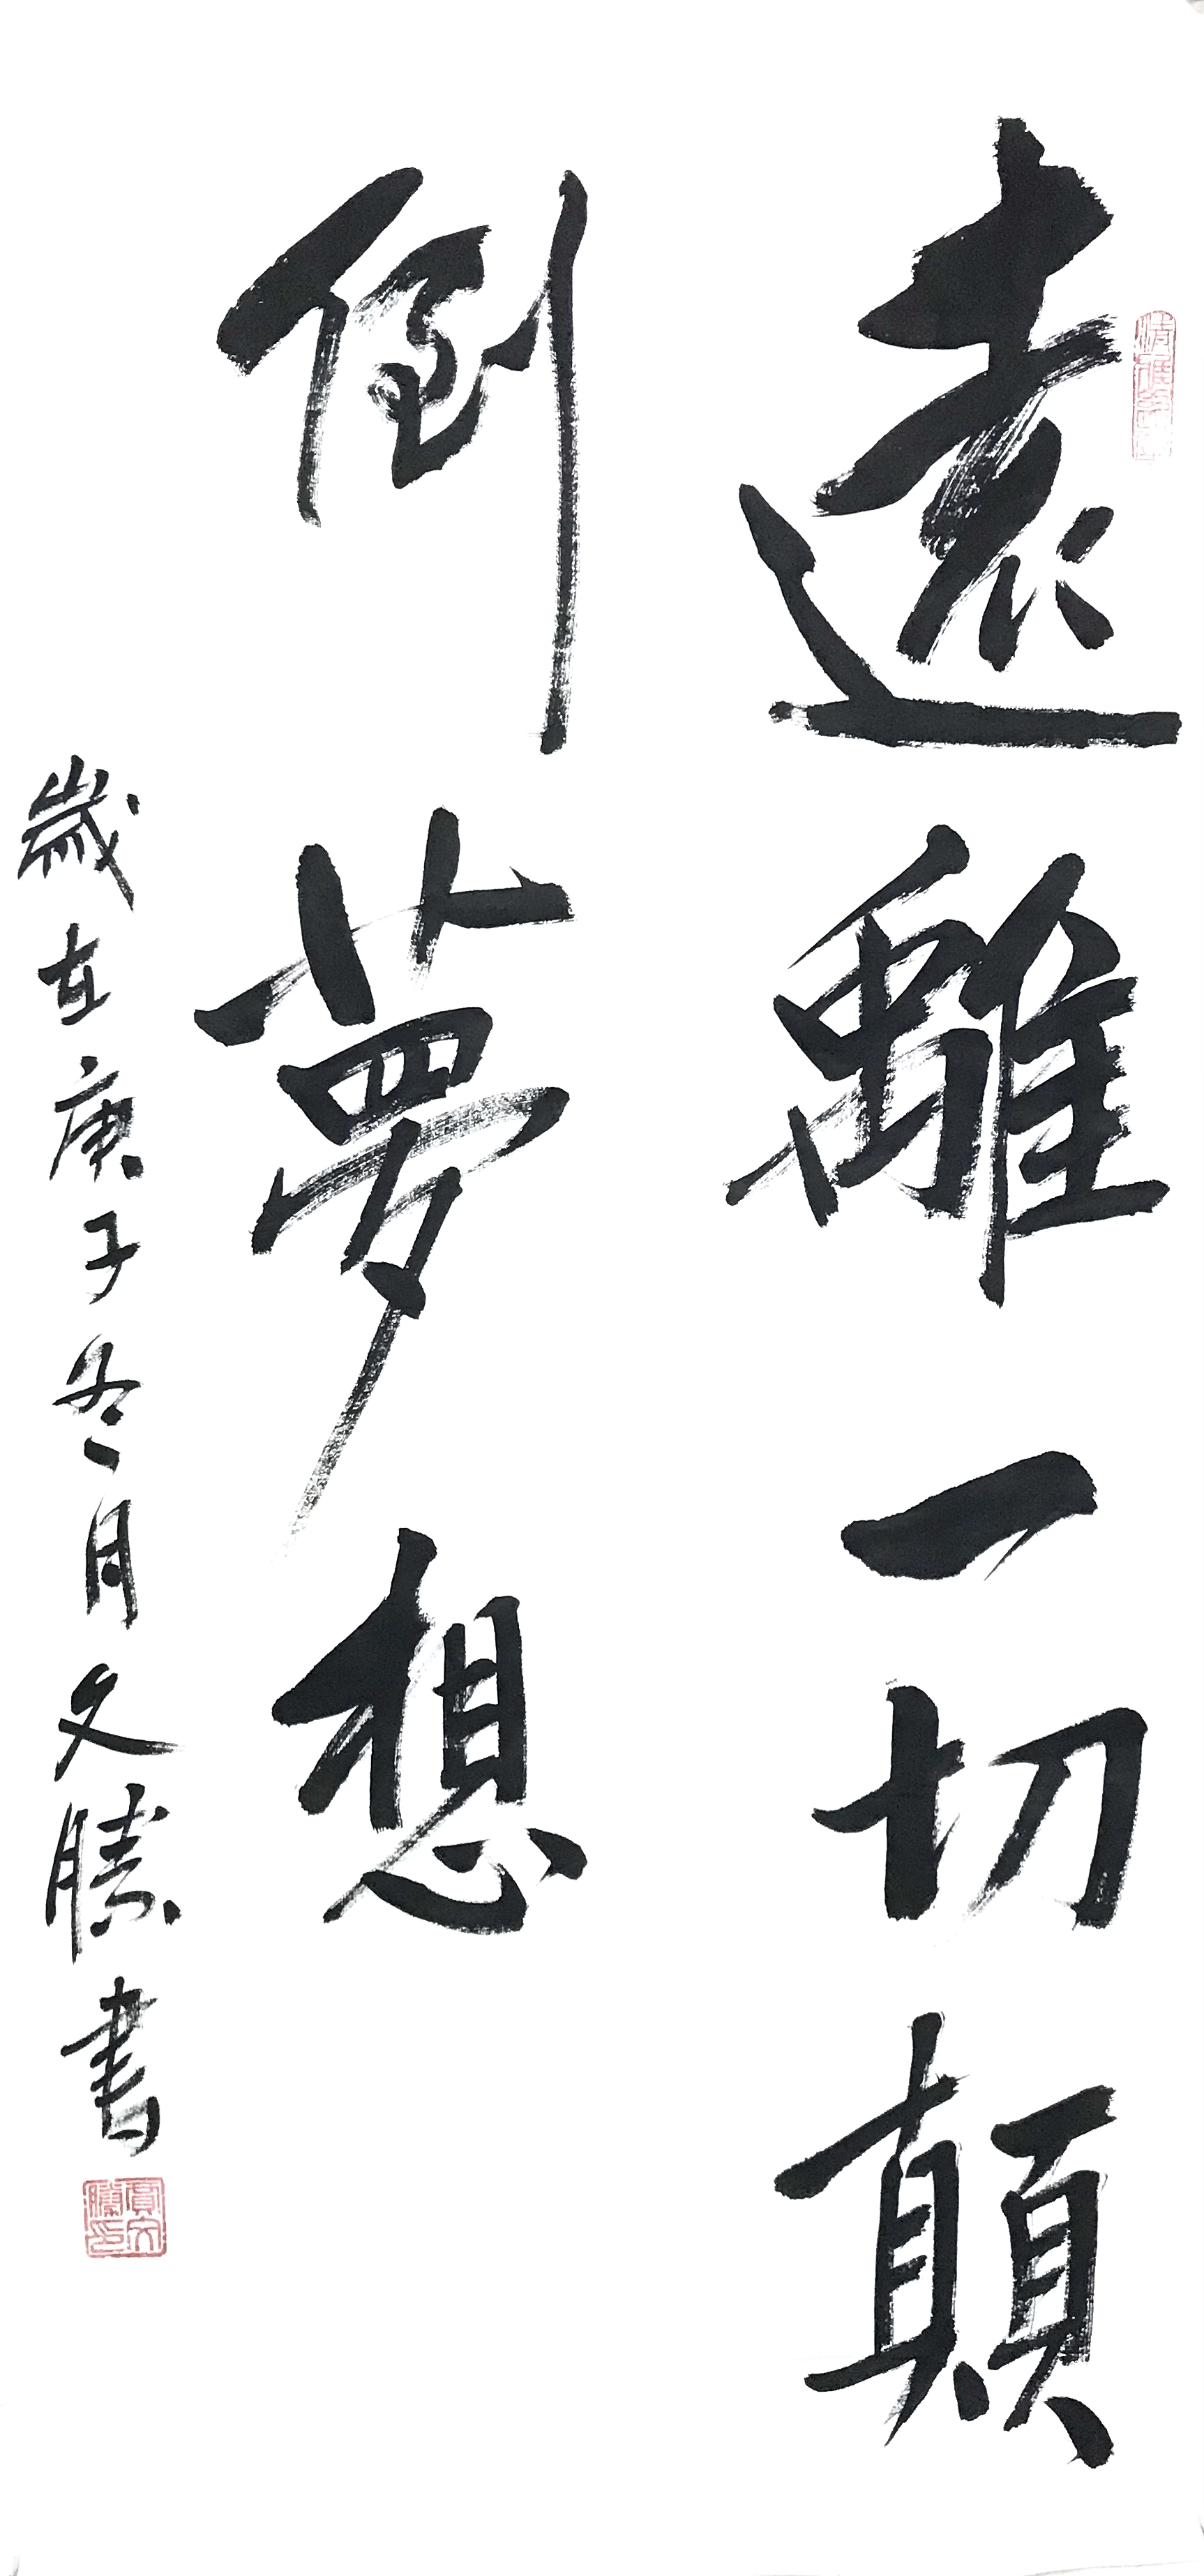 遠離一切顛
倒夢想
歲在庚子冬月文勝書